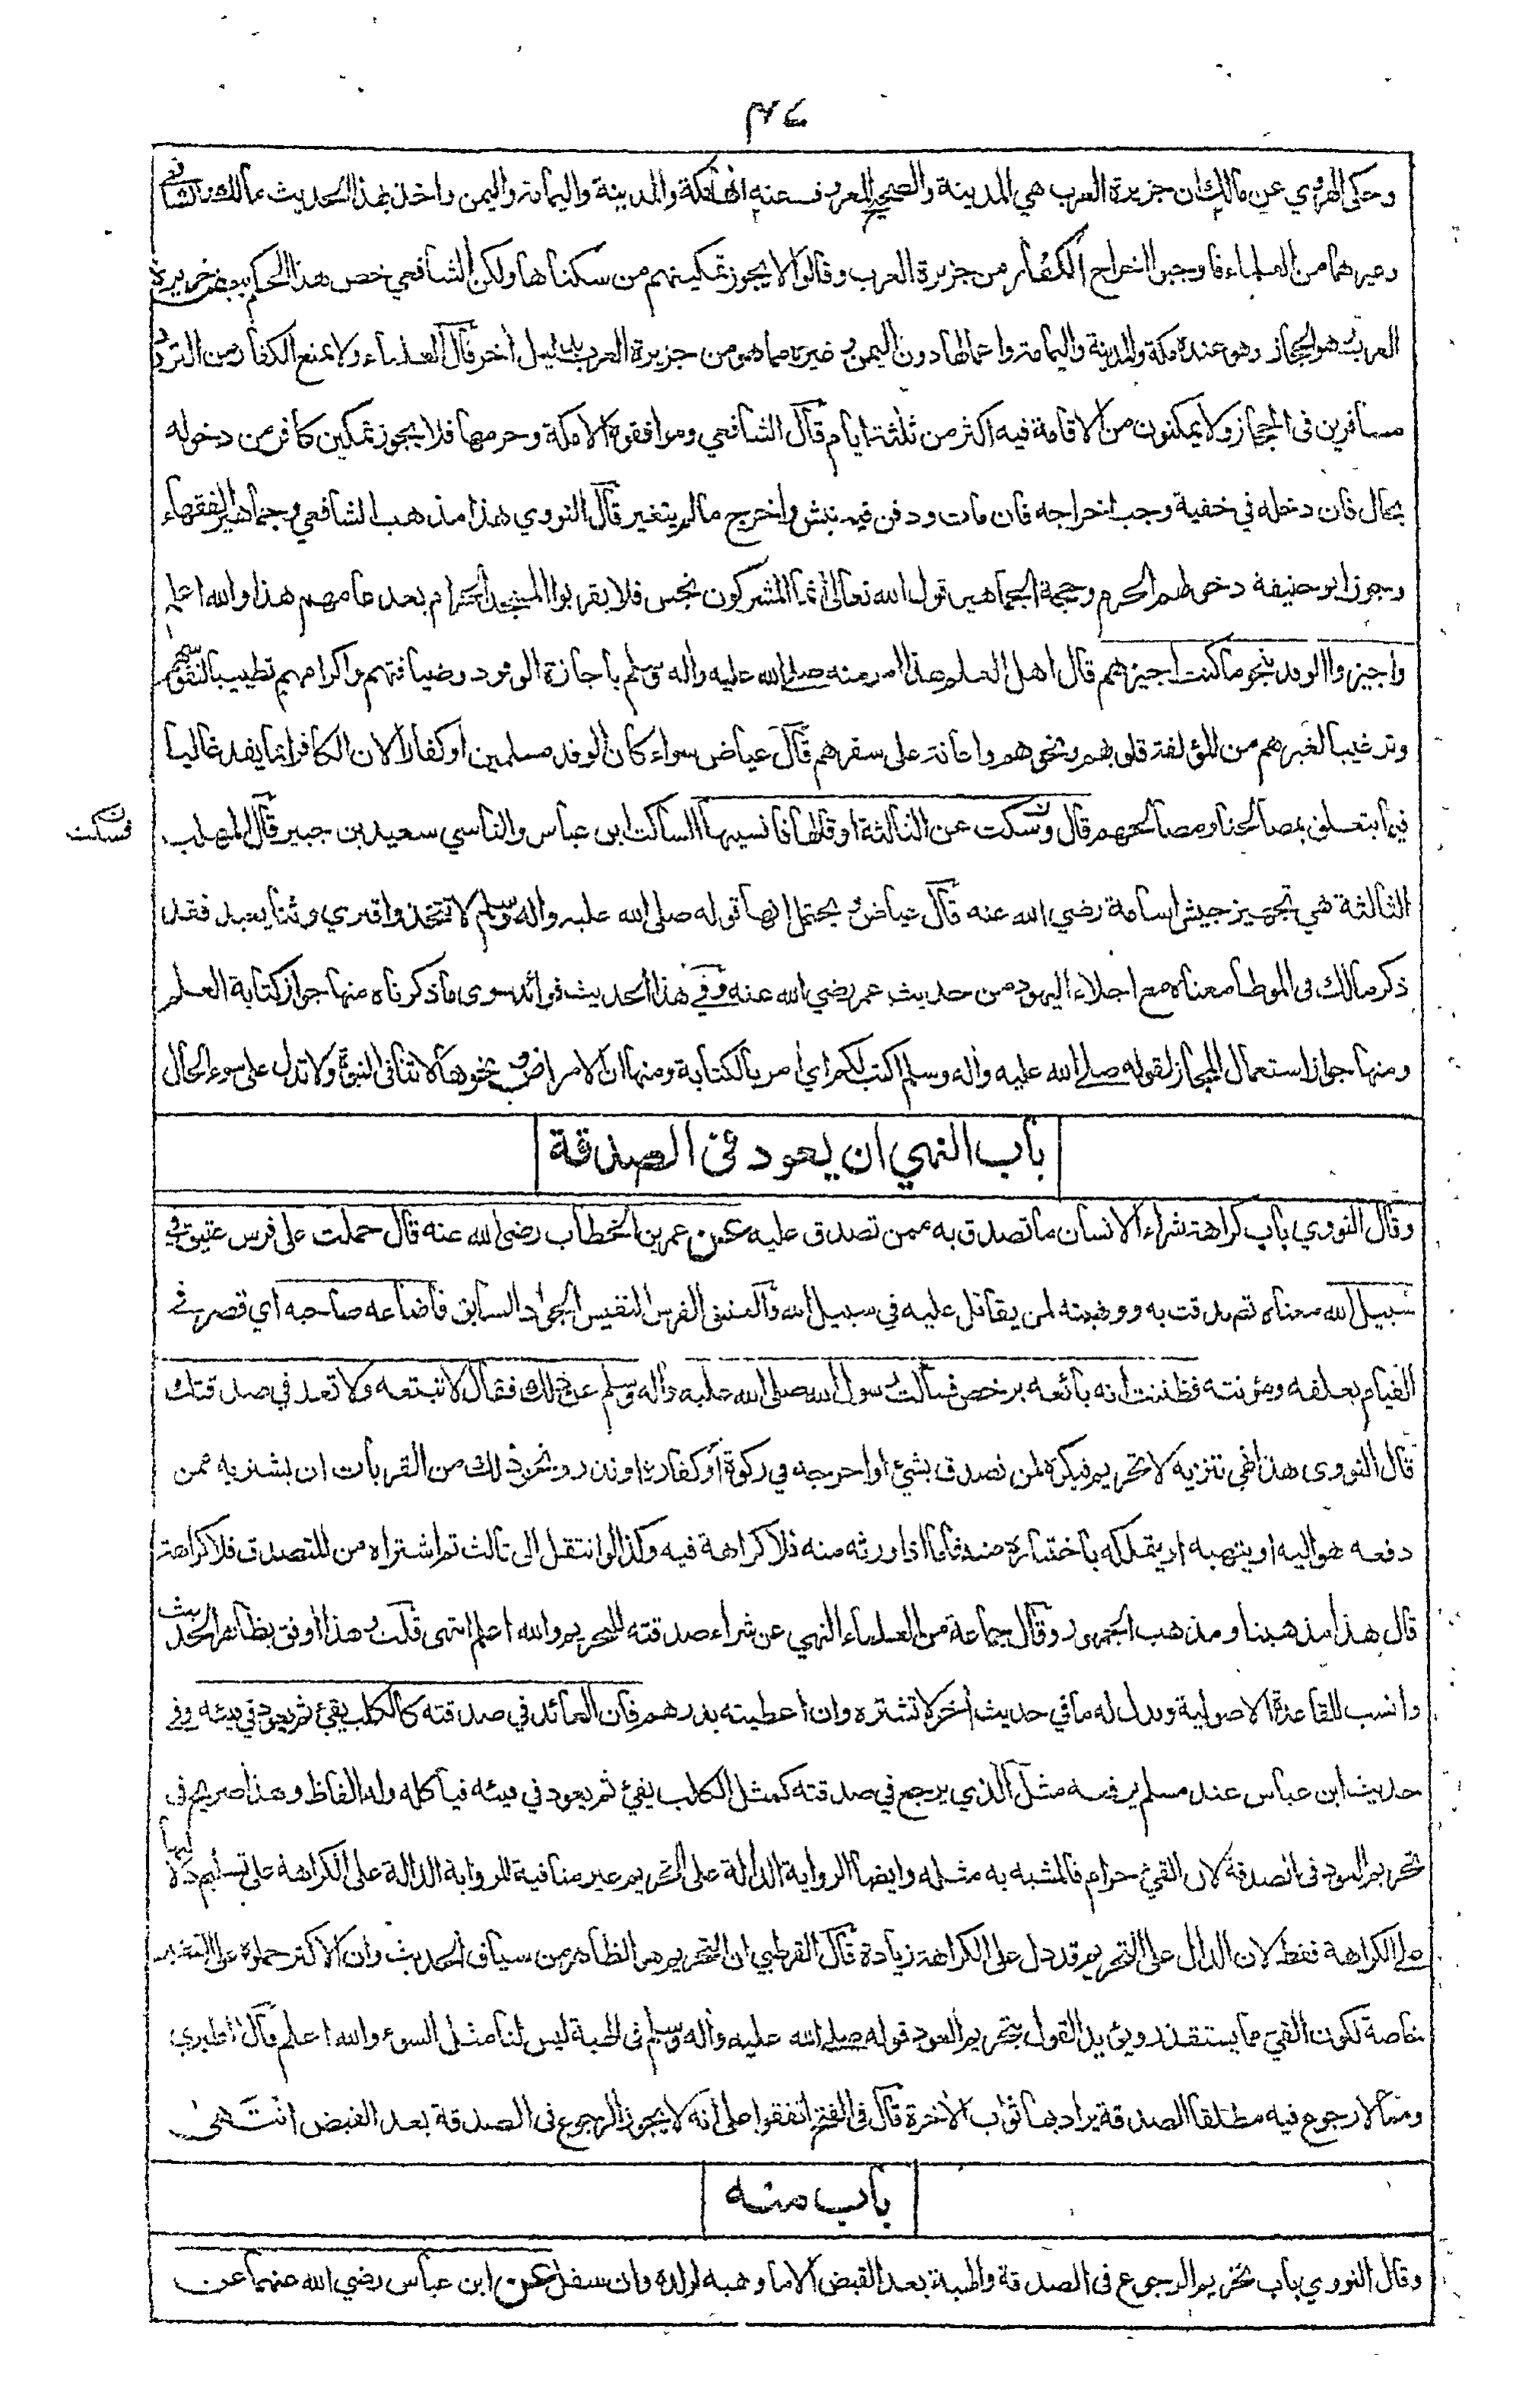 ٣٤
وحكى الهروي عن مالك ان جزيرة العرب هي المدينة والصحيح المعروف عنه انها مكة والمدينة واليمامة واليمن واخذ بهذا الحديث مالك والشافعي
وغيرهما من العلماء فاوجبوا اخراج الكفار من جزيرة العرب وقالوا لا يجوز تمكينهم من سكناها ولكن الشافعي خص هذا الحكم ببعض جزيرة
العرب وهو الحجاز وهو عنده مكة والمدينة واليمامة واعمالها دون اليمن وغيره مما هو من جزيرة العرب بدليل اخر قال العلماء ولا يمنع الكفار من التردد
مسافرين فى الحجاز ولا يمكنون من الاقامة فيه اكثر من ثلثة ايام قال الشافعي وموافقوه الا مكة وحرمها فلا يجوز تمكين كافر من دخوله
بحال فان دخله في خفية وجب اخراجه فان مات ودفن فيه نبش واخرج مالم يتغير قال النووي هذا مذهب الشافعي وجماهير الفقهاء
وجوز ابو حنيفة دخولهم الحرم وحجة الجماهير قول الله تعالى انما المشركون نجس فلا يقربوا المسجد الحرام بعد عامهم هذا والله اعلم
واجيزوا الوفد بنحو ما كنت اجيزهم قال اهل العلم هذا امر منه صلى الله عليه واله وسلم باجازة الوفود وضيافتهم واكرامهم تطييبا لنفوسهم
وترغيبا لغيرهم من المؤلفة قلوبهم ونحوهم واعانة على سفرهم قال عياض سواء كان الوفد مسلمين او كفارا لان الكافر انما يفد غالبا
فيما يتعلق بمصالحنا ومصالحهم قال وسكت عن الثالثة او قالها فانسيها الساكت ابن عباس والناسي سعيد بن جبير قال المهلب
ن فسكت
الثالثة هي تجهيز جيش اسامة رضي الله عنه قال عياض ويحتمل انها قوله صلى الله عليه واله وسلم لا تتخذوا قبري وثنا يعبد فقد
ذكر مالك فى الموطا معناه مع اجلاء اليهود من حديث عمر رضي الله عنه وفي هذا الحديث فوائد سوى ما ذكرناه منها جواز كتابة العلم
ومنها جواز استعمال المجاز لقوله صلى الله عليه واله وسلم اكتب لكم اي امر بالكتابة ومنها ان الامراض ونحوها لا تنافى النبوة ولا تدل على سوء الحال
باب النهي ان يعود في الصدقة
وقال النووي باب كراهة شراء الانسان ما تصدق به ممن تصدق عليه عن عمر بن الخطاب رضي الله عنه قال حملت على فرس عتيق في
سبيل الله معناه تصدقت به ووهبته لمن يقاتل عليه في سبيل الله والعتيق الفرس النفيس الجواد السابق فاضاعه صاحبه اي قصر في
القيام بعلفه ومؤنته فظننت انه بائعه برخص فسألت رسول الله صلى الله عليه واله وسلم عن ذلك فقال لا تبتعه ولا تعد في صدقتك
قال النووى هذا نهي تنزيه لا تحريم فيكره لمن تصدق بشئ او اخرجه في زكوة او كفارة او نذر ونحو ذلك من القربات ان يشتريه ممن
دفعه هو اليه او يتهبه او يتملكه باختياره منه فاما اذا ورثه منه فلا كراهة فيه وكذا لو انتقل الى ثالث ثم اشتراه منه المتصدق فلا كراهة
قال هذا مذهبنا ومذهب الجمهور وقال جماعة من العلماء النهي عن شراء صدقته للتحريم والله اعلم انتهى قلت وهذا اوفق بظاهر الحديث
وانسب للقاعدة الاصولية ويدل له ما في حديث اخر لا تشتره وان اعطيته بدرهم فان العائد في صدقته كالكلب يقيئ ثم يعود في قيئه وفي
حديث ابن عباس عند مسلم يرفعه مثل الذي يرجع في صدقته كمثل الكلب يقيئ ثم يعود في قيئه فيأكله وله الفاظ وهذا صريح فى
تحريم العود فى الصدقة لان القيئ حرام فالمشبه به مثله وايضا الرواية الدالة على التحريم غير منافية للرواية الدالة على الكراهة على تسليم دلالتها
على الكراهة فقط لان الدال على التحريم قد دل على الكراهة وزيادة قال القرطبي ان التحريم هو الظاهر من سياق الحديث وان الاكثر حملوه على التنفير
خاصة لكون القيئ مما يستقذر ويؤيد القول بتحريم العود قوله صلى الله عليه واله وسلم فى الهبة ليس لنا مثل السوء والله اعلم قال الطبري
ومما لا رجوع فيه مطلقا الصدقة يراد بها ثواب الاخرة قال فى الفتح اتفقوا على انه لا يجوز الرجوع فى الصدقة بعد القبض انتهى
باب منه
وقال النووي باب تحريم الرجوع فى الصدقة والهبة بعد القبض الا ما وهبه لولده وان سفل عن ابن عباس رضي الله عنهما عن